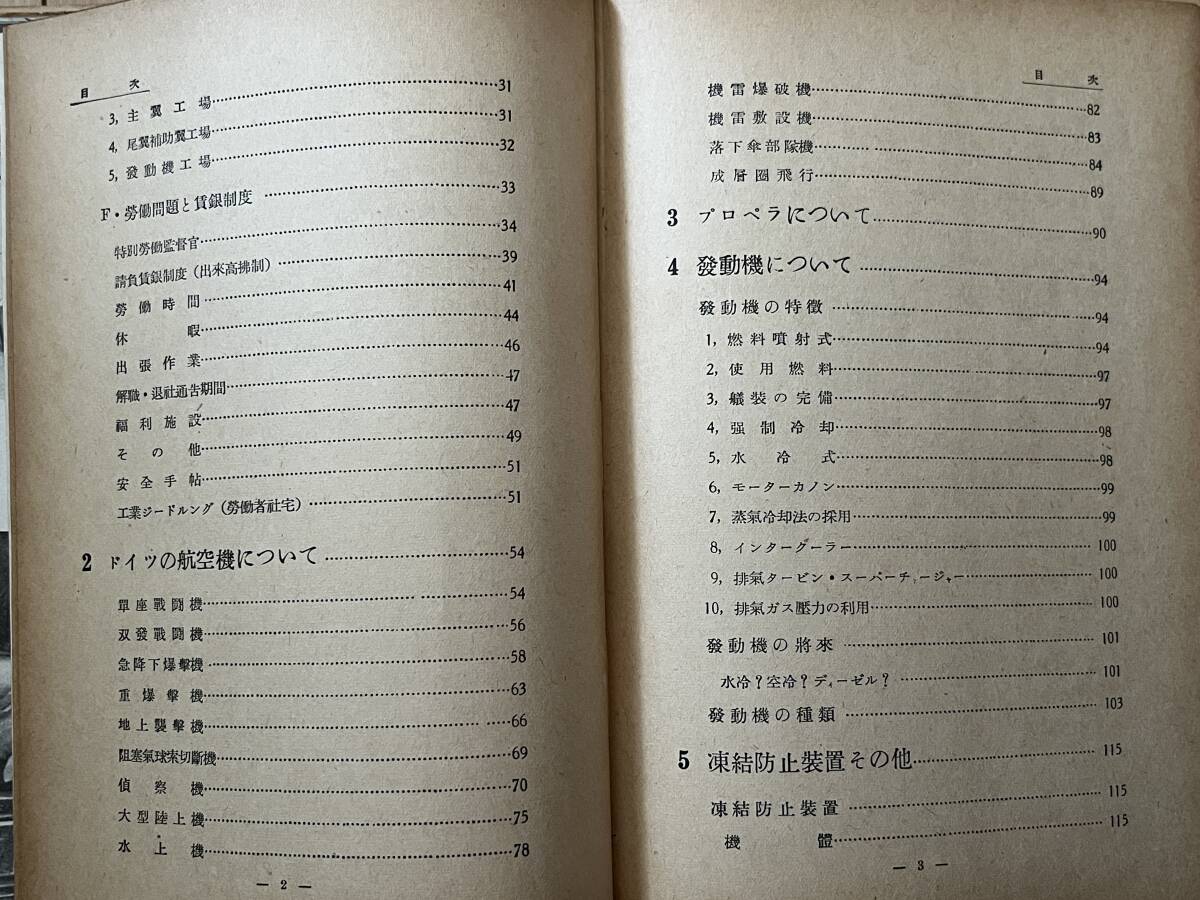 目次
3, 主翼工場……31
4, 尾翼補助翼工場……31
5, 發動機工場……32
F・勞働問題と賃銀制度……33
特別勞働監督官……34
請負賃銀制度（出來高拂制）……39
勞働時間……41
休暇……44
出張作業……46
解職・退社通告期間……47
福利施設……47
その他……49
安全手帖……51
工業ジードルング（勞働者社宅）……51
2 ドイツの航空機について……54
單座戰鬪機……54
双發戰鬪機……56
急降下爆擊機……58
重爆擊機……63
地上襲擊機……66
阻塞氣球索切斷機……69
偵察機……70
大型陸上機……75
水上機……78
— 2 —
目次
機雷爆破機……82
機雷敷設機……83
落下傘部隊機……84
成層圈飛行……89
3 プロペラについて……90
4 發動機について……94
發動機の特徴……94
1, 燃料噴射式……94
2, 使用燃料……97
3, 艤裝の完備……97
4, 强制冷却……98
5, 水冷式……98
6, モーターカノン……99
7, 蒸氣冷却法の採用……99
8, インタークーラー……100
9, 排氣タービン・スーパーチャージャー……100
10, 排氣ガス壓力の利用……100
發動機の將來……101
水冷？空冷？ディーゼル？……101
發動機の種類……103
5 凍結防止裝置その他……115
凍結防止裝置……115
機體……115
— 3 —